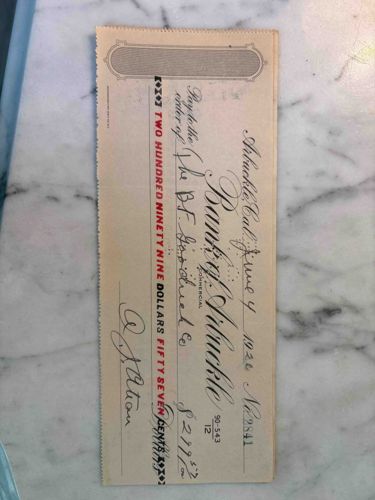 Arbuckle, Cal. June 4 1926 No. 2841
Bank of Arbuckle
COMMERCIAL
90-543
12
Pay to the
order of The B.F. Goodrich Co $ 299 57/00
TWO HUNDRED NINETY NINE DOLLARS FIFTY SEVEN CENTS
Dollars